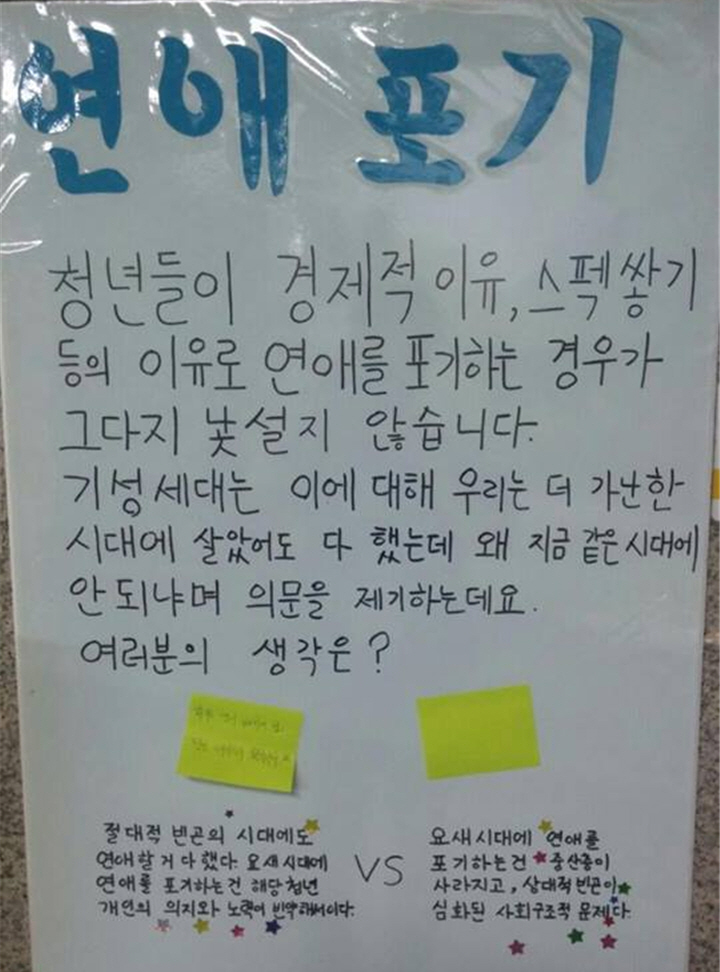 연애 포기
청년들이 경제적 이유, 스펙 쌓기
등의 이유로 연애를 포기하는 경우가
그다지 낯설지 않습니다.
기성세대는 이에 대해 우리는 더 가난한
시대에 살았어도 다 했는데 왜 지금 같은 시대에
안되냐며 의문을 제기하는데요.
여러분의 생각은?
절대적 빈곤의 시대에도
연애할 거 다 했다. 요새 시대에
연애를 포기하는건 해당 청년
개인의 의지와 노력이 빈약해서이다.
VS
요새 시대에 연애를
포기하는건 중산층이
사라지고, 상대적 빈곤이
심화된 사회구조적 문제다.